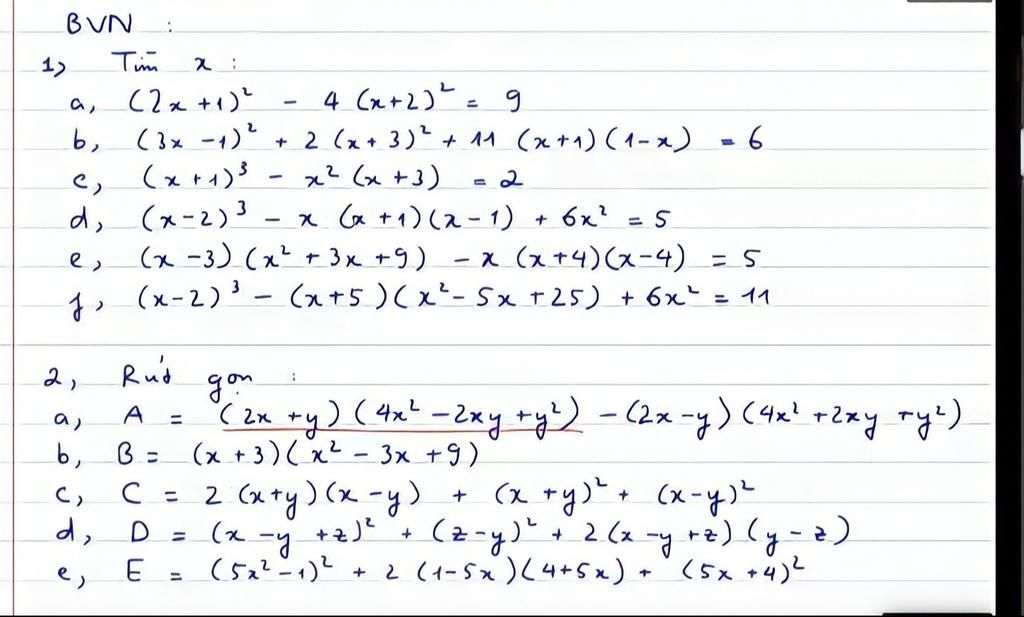 BVN :
1) Tìm x :
a, (2x + 1)² - 4 (x+2)² = 9
b, (3x - 1)² + 2 (x + 3)² + 11 (x+1)(1-x) = 6
c, (x + 1)³ - x² (x + 3) = 2
d, (x-2)³ - x (x + 1)(x - 1) + 6x² = 5
e, (x - 3)(x² + 3x + 9) - x (x+4)(x-4) = 5
f, (x-2)³ - (x+5)(x² - 5x + 25) + 6x² = 11
2, Rút gọn :
a, A = (2x + y)(4x² - 2xy + y²) - (2x - y)(4x² + 2xy + y²)
b, B = (x + 3)(x² - 3x + 9)
c, C = 2 (x+y)(x - y) + (x + y)² + (x - y)²
d, D = (x - y + z)² + (z - y)² + 2 (x - y + z)(y - z)
e, E = (5x² - 1)² + 2 (1-5x)(4+5x) + (5x + 4)²